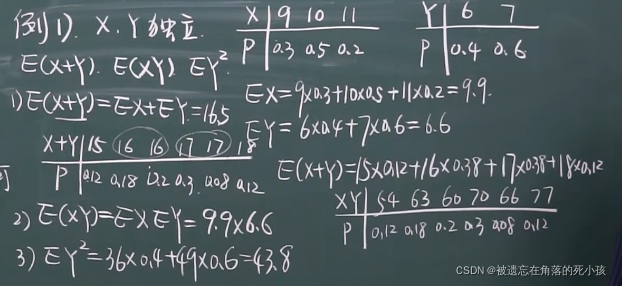 例1). X、Y独立.
X 9 10 11
P 0.3 0.5 0.2
Y 6 7
P 0.4 0.6
E(X+Y). E(XY) EY².
1) E(X+Y)=EX+EY=16.5
EX=9×0.3+10×0.5+11×0.2=9.9.
EY=6×0.4+7×0.6=6.6
X+Y 15 16 16 17 17 18
P 0.12 0.18 0.2 0.3 0.08 0.12
E(X+Y)=15×0.12+16×0.38+17×0.38+18×0.12
XY 54 63 60 70 66 77
P 0.12 0.18 0.2 0.3 0.08 0.12
2) E(XY)=EXEY=9.9×6.6
3) EY²=36×0.4+49×0.6=43.8
CSDN @被遗忘在角落的死小孩